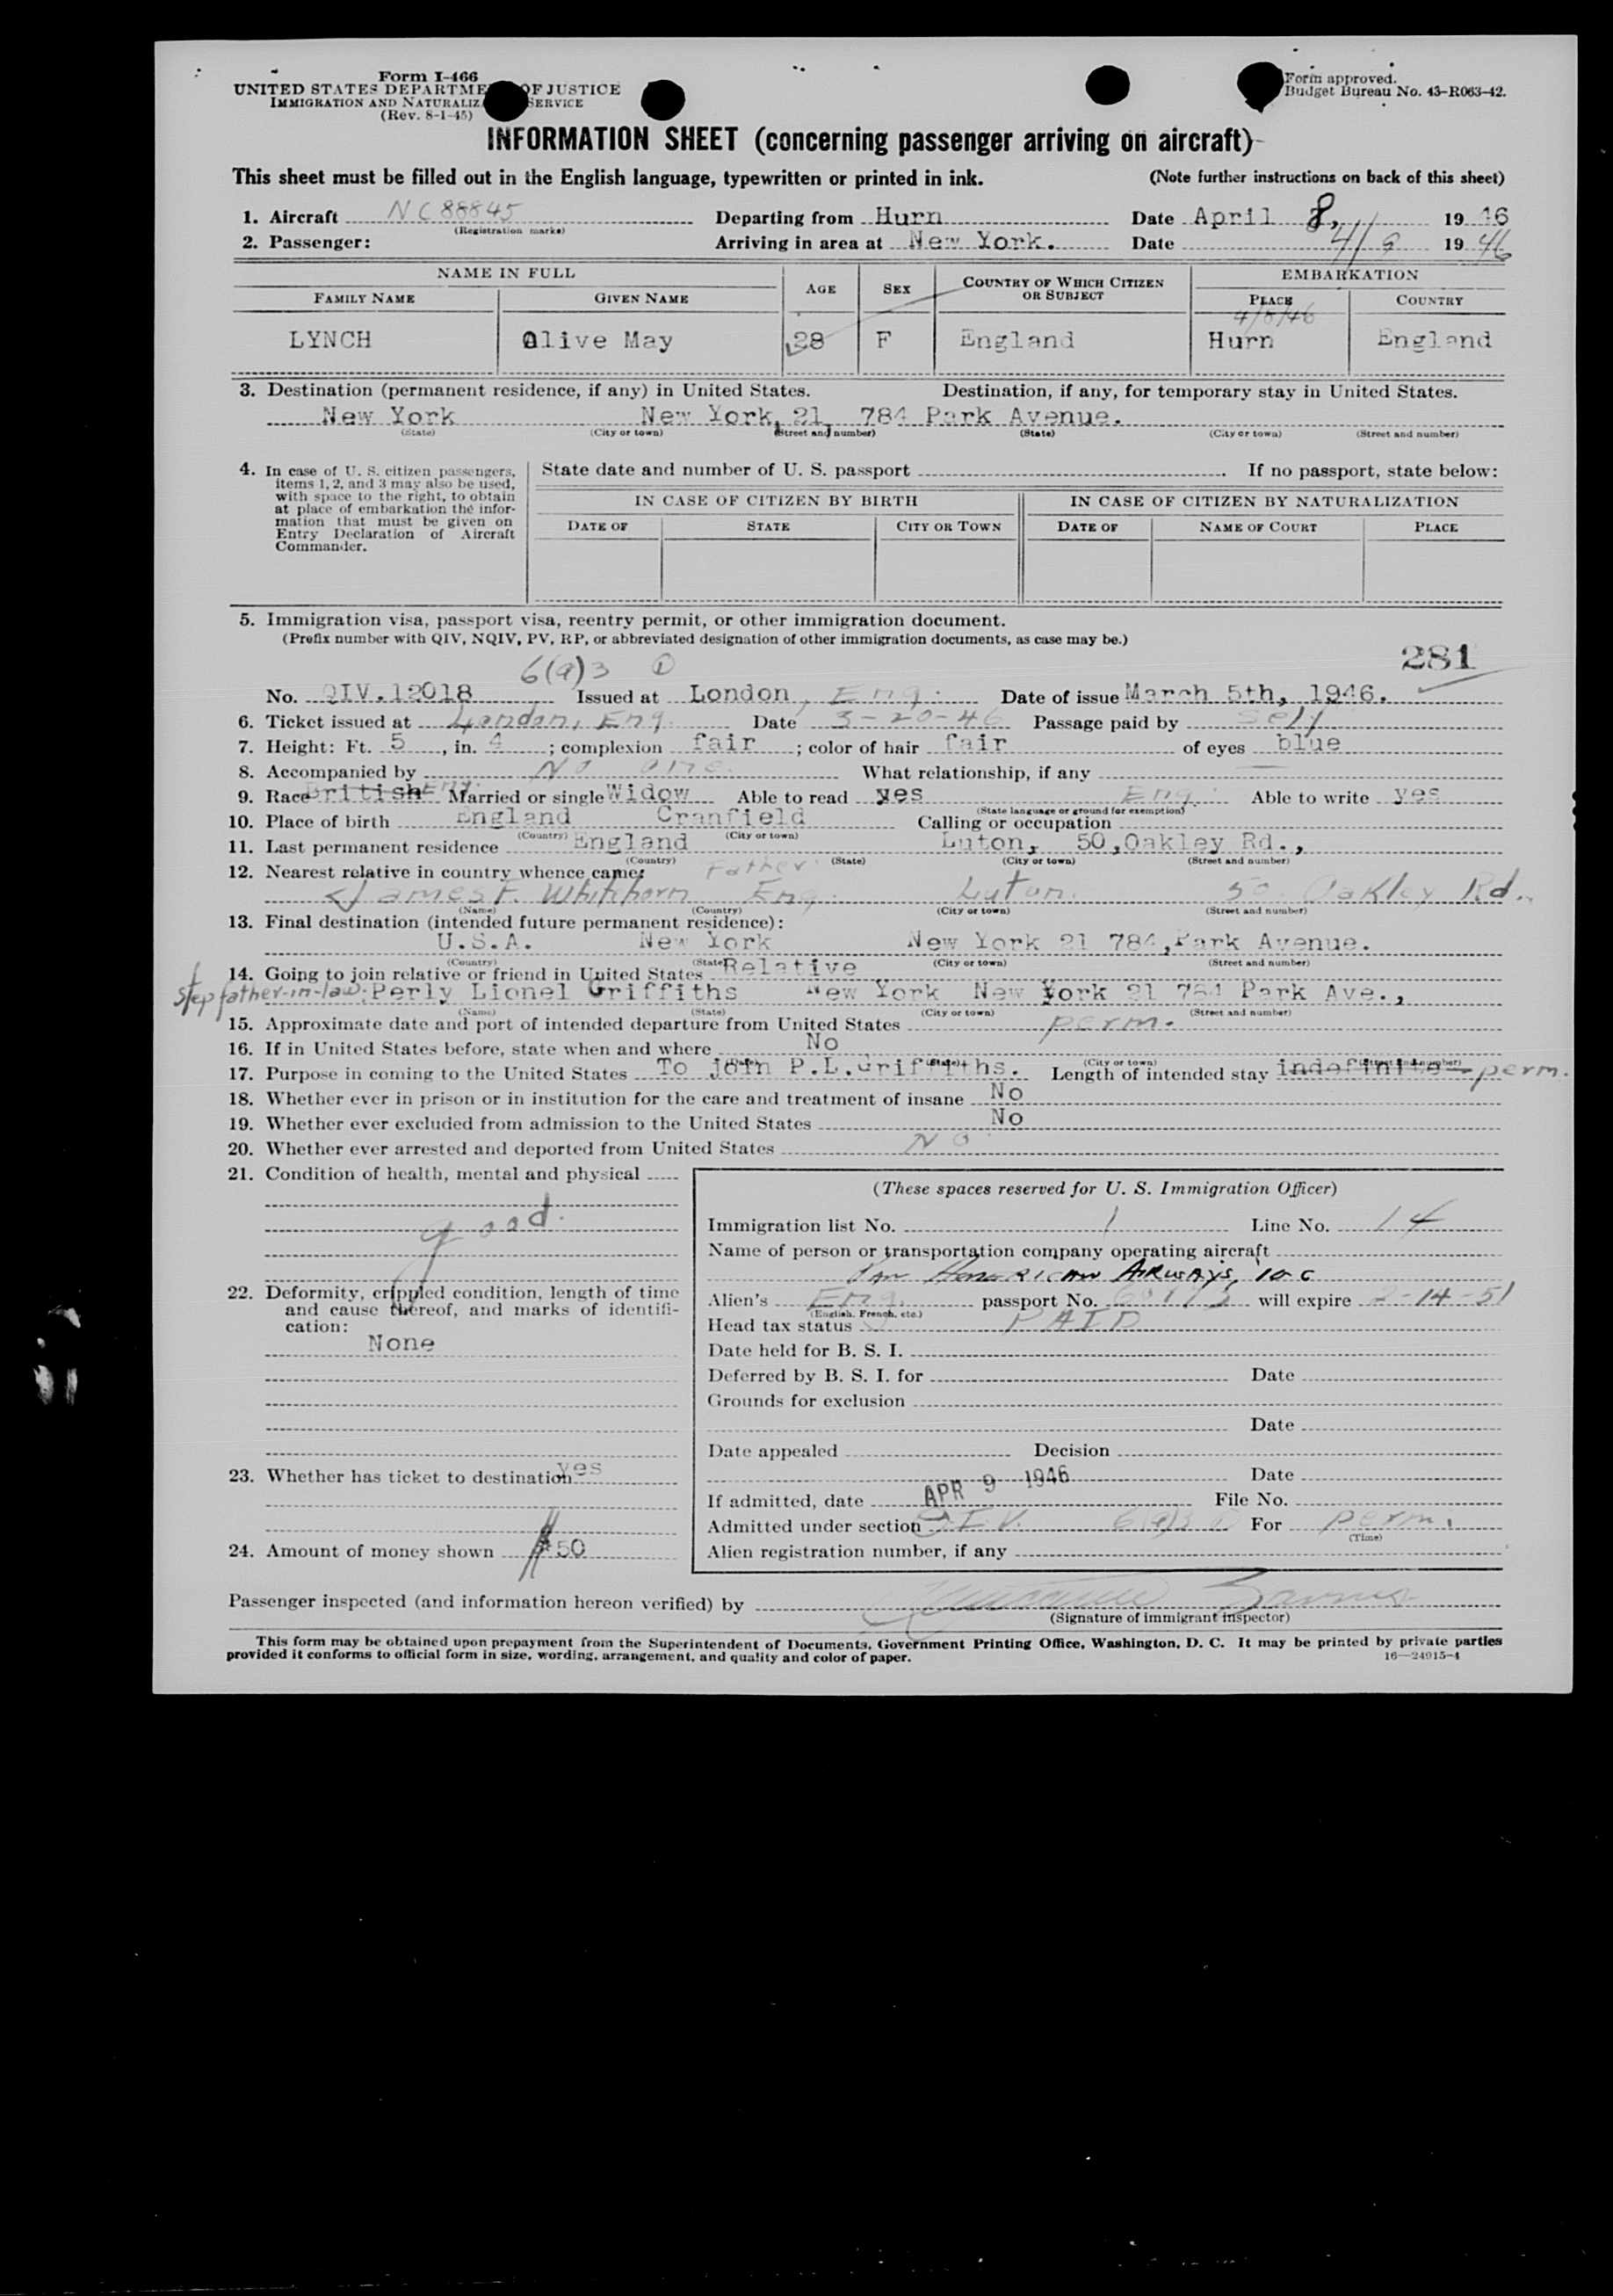 Form I-466
UNITED STATES DEPARTMENT OF JUSTICE
IMMIGRATION AND NATURALIZATION SERVICE
(Rev. 8-1-45)
Form approved.
Budget Bureau No. 43-R063-42.
INFORMATION SHEET (concerning passenger arriving on aircraft)
This sheet must be filled out in the English language, typewritten or printed in ink. (Note further instructions on back of this sheet)
1. Aircraft NC88845 Departing from Hurn Date April 8, 19 46
(Registration marks)
2. Passenger: Arriving in area at New York. Date 4/9 19 46
NAME IN FULL AGE SEX COUNTRY OF WHICH CITIZEN OR SUBJECT EMBARKATION
FAMILY NAME GIVEN NAME PLACE COUNTRY
4/8/46
LYNCH Olive May 28 F England Hurn England
3. Destination (permanent residence, if any) in United States. Destination, if any, for temporary stay in United States.
New York New York, 21, 784 Park Avenue.
(State) (City or town) (Street and number) (State) (City or town) (Street and number)
4. In case of U. S. citizen passengers, items 1, 2, and 3 may also be used, with space to the right, to obtain at place of embarkation the information that must be given on Entry Declaration of Aircraft Commander.
State date and number of U. S. passport . If no passport, state below:
IN CASE OF CITIZEN BY BIRTH IN CASE OF CITIZEN BY NATURALIZATION
DATE OF STATE CITY OR TOWN DATE OF NAME OF COURT PLACE
5. Immigration visa, passport visa, reentry permit, or other immigration document.
(Prefix number with QIV, NQIV, PV, RP, or abbreviated designation of other immigration documents, as case may be.)
281
6(a)3 ①
No. QIV.12018 Issued at London, Eng. Date of issue March 5th, 1946.
6. Ticket issued at London, Eng. Date 3-20-46 Passage paid by self
7. Height: Ft. 5, in. 4; complexion fair; color of hair fair of eyes blue
8. Accompanied by No one. What relationship, if any —
9. Race British Eng. Married or single Widow Able to read yes Eng. Able to write yes
(State language or ground for exemption)
10. Place of birth England Cranfield Calling or occupation
(Country) (City or town)
11. Last permanent residence England Luton, 50, Oakley Rd.,
(Country) (State) (City or town) (Street and number)
12. Nearest relative in country whence came: Father
James F. Whitehorn Eng. Luton. 50 Oakley Rd.
(Name) (Country) (City or town) (Street and number)
13. Final destination (intended future permanent residence):
U.S.A. New York New York 21 784, Park Avenue.
(Country) (State) (City or town) (Street and number)
14. Going to join relative or friend in United States Relative
Step father-in-law: Perly Lionel Griffiths New York New York 21 784 Park Ave.,
(Name) (State) (City or town) (Street and number)
15. Approximate date and port of intended departure from United States perm.
16. If in United States before, state when and where No
(Date) (State) (City or town) (Street and number)
17. Purpose in coming to the United States To join P.L.Griffiths. Length of intended stay indefinite perm.
18. Whether ever in prison or in institution for the care and treatment of insane No
19. Whether ever excluded from admission to the United States No
20. Whether ever arrested and deported from United States No
21. Condition of health, mental and physical
good.
22. Deformity, crippled condition, length of time and cause thereof, and marks of identification:
None
23. Whether has ticket to destination yes
24. Amount of money shown $50
(These spaces reserved for U. S. Immigration Officer)
Immigration list No. 1 Line No. 14
Name of person or transportation company operating aircraft
Pan American Airways, Inc
Alien's Eng. passport No. will expire 2-14-51
(English, French, etc.)
Head tax status PAID
Date held for B. S. I.
Deferred by B. S. I. for Date
Grounds for exclusion
Date
Date appealed Decision
Date
If admitted, date APR 9 1946 File No.
Admitted under section QIV. 6(a)3 ① For perm.
(Time)
Alien registration number, if any
Passenger inspected (and information hereon verified) by
(Signature of immigrant inspector)
This form may be obtained upon prepayment from the Superintendent of Documents, Government Printing Office, Washington, D. C. It may be printed by private parties
provided it conforms to official form in size, wording, arrangement, and quality and color of paper. 16—24915-4